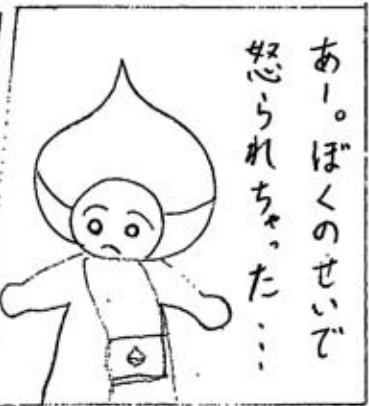 あー。ぼくのせいで
怒られちゃった…